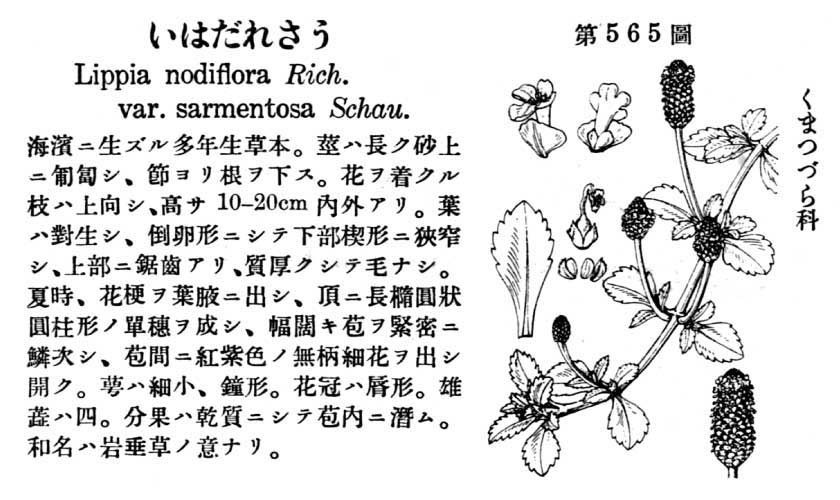 いはだれさう
Lippia nodiflora Rich.
var. sarmentosa Schau.
海濱ニ生ズル多年生草本。莖ハ長ク砂上
ニ匍匐シ、節ヨリ根ヲ下ス。花ヲ着クル
枝ハ上向シ、高サ 10–20cm 內外アリ。葉
ハ對生シ、倒卵形ニシテ下部楔形ニ狹窄
シ、上部ニ鋸齒アリ、質厚クシテ毛ナシ。
夏時、花梗ヲ葉腋ニ出シ、頂ニ長橢圓狀
圓柱形ノ單穗ヲ成シ、幅闊キ苞ヲ緊密ニ
鱗次シ、苞間ニ紅紫色ノ無柄細花ヲ出シ
開ク。萼ハ細小、鐘形。花冠ハ脣形。雄
蕋ハ四。分果ハ乾質ニシテ苞內ニ潛ム。
和名ハ岩垂草ノ意ナリ。
第565圖
くまつづら科